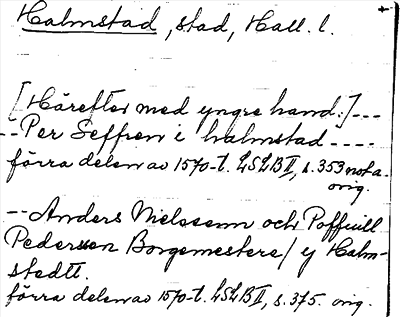 Halmstad, stad, Hall. l.
[Härefter med yngre hand:] ---
-- Per Seffren i halmstad ----
förra delen av 1570-t. LSLB II, s. 353 not a.
orig.
-- Anders Nielssenn och Poffuill
Pedersson Borgemestere / y Halm-
stedtt.
förra delen av 1570-t. LSLB II, s. 375. orig.